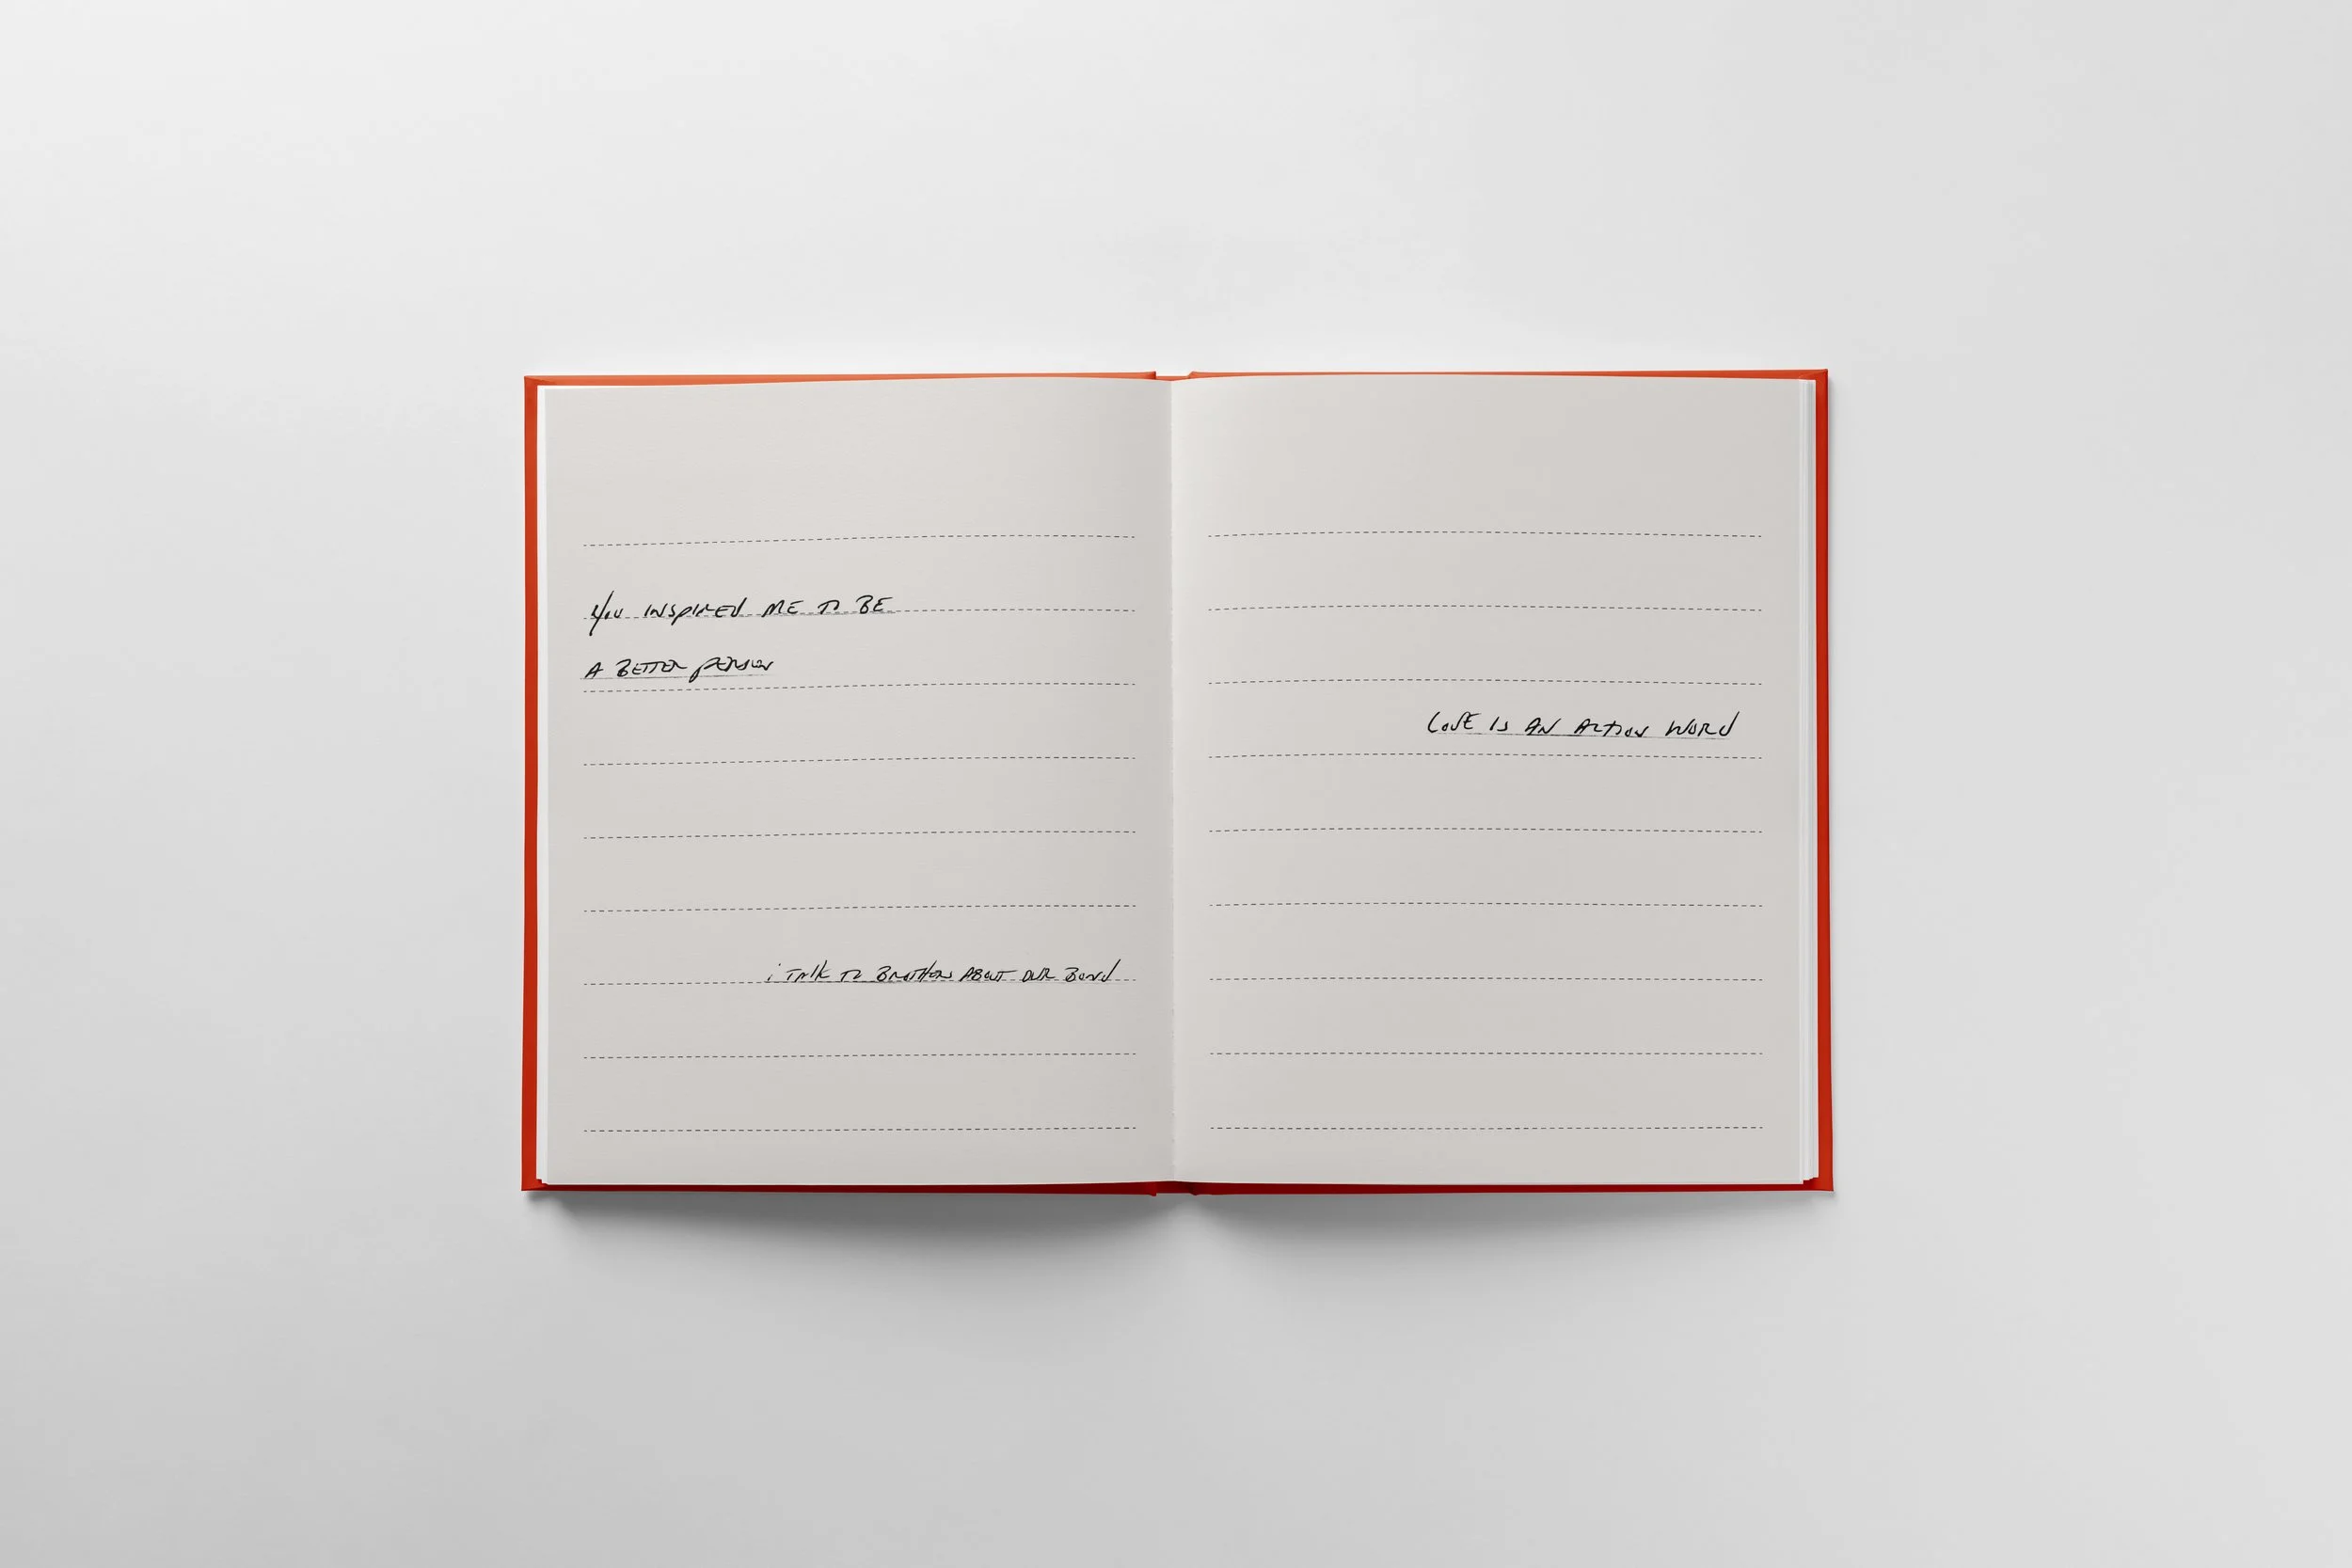 You INSPIRED ME TO BE
A BETTER PERSON
i TALK TO BROTHERS ABOUT OUR BOND
LOVE IS AN ACTION WORD